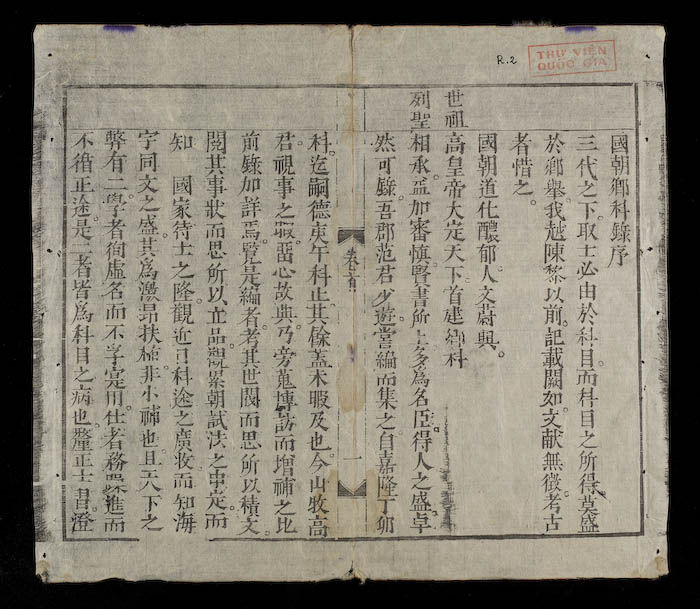 R.2
THƯ VIỆN
QUỐC GIA
國朝鄉科錄序
三代之下取士必由於科目而科目之所得莫盛
於鄉舉我越陳黎以前記載闕如文献無徵考古
者惜之
國朝道化醲郁人文蔚興
世祖高皇帝大定天下首建鄉科
列聖相承益加審慎賢書所上多為名臣得人之盛卓
然可錄吾郡范君少遊嘗編而集之自嘉隆丁卯
卷首
一
科迄嗣德庚午科止其餘蓋未暇及也今山牧高
君視事之暇留心故典乃旁蒐博訪而增補之比
前錄加詳焉覽是編者考其世閥而思所以積文
閱其事狀而思所以立品觀累朝試法之申定而
知 國家待士之隆觀近日科途之廣收而知海
宇同文之盛其為激昂扶植非小補也且天下之
弊有二學者徇虛名而不孚寔用仕者務躁進而
不循正途是二者皆為科目之病也釐正士習澄